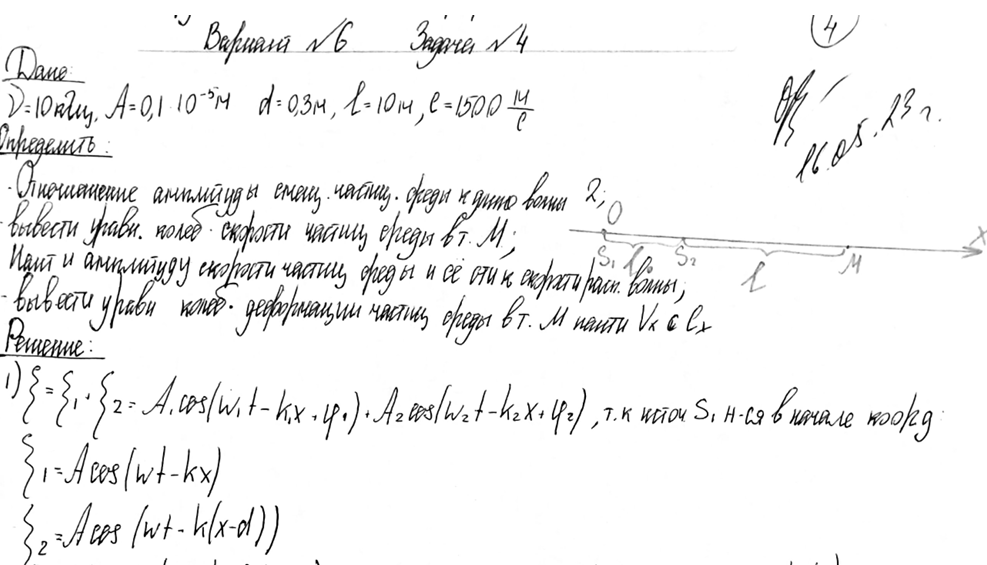 Вариант №6 Задача №4
4
Дано:
ν=10кГц, A=0,1·10⁻⁵м d=0,3м, l=10м, c=1500 м/с
16.05.23 г.
Определить:
- Отношение амплитуды смещ. частиц. среды к длине волны λ;
- вывести уравн. колеб. скорости частиц среды в т. M;
O
S₁ l₀ S₂ l M x
Найти амплитуду скорости частиц среды и её отн к скорости расп. волны;
- вывести уравн колеб. деформации частиц среды в т. M найти Vx с εx
Решение:
1) ξ=ξ₁+ξ₂=A₁cos(w₁t-k₁x+φ₁)+A₂cos(w₂t-k₂x+φ₂), т.к источ S₁ н-ся в начале коорд:
ξ₁=Acos(wt-kx)
ξ₂=Acos(wt-k(x-d))